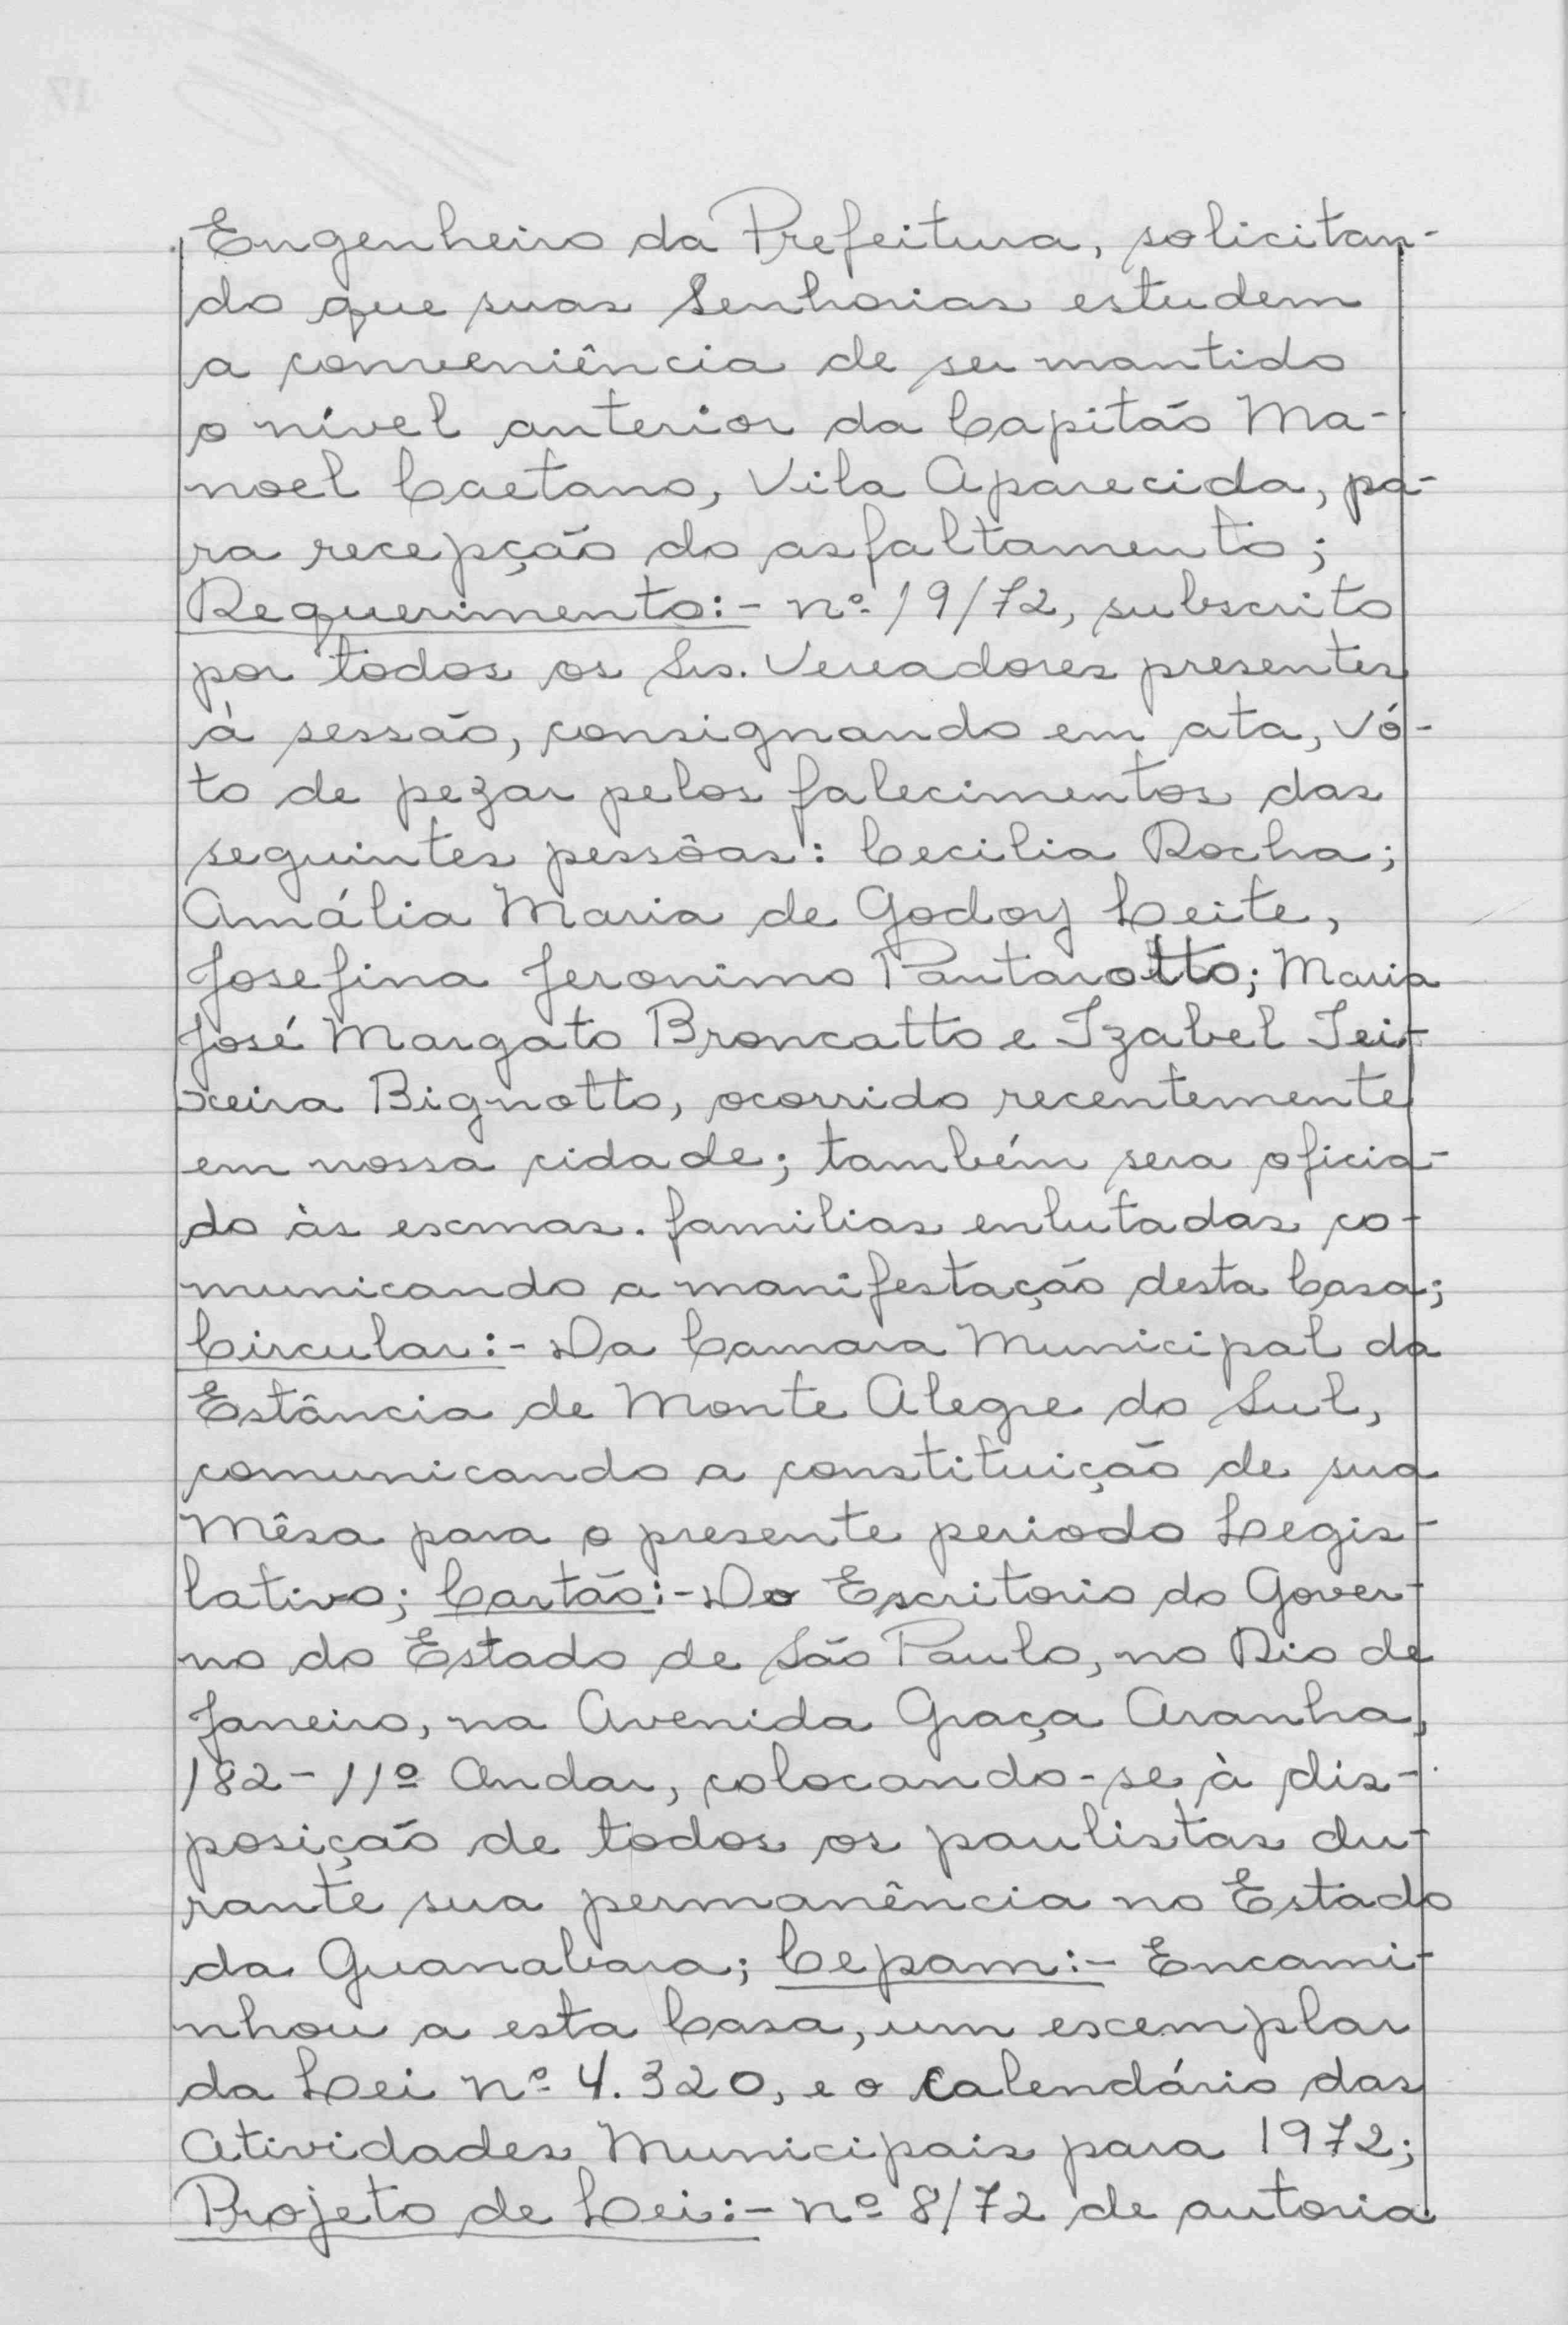 Engenheiro da Prefeitura, solicitan-
do que suas Senhorias estudem
a conveniência de ser mantido
o nível anterior da Capitão Ma-
noel Caetano, Vila Aparecida, pa-
ra recepção do asfaltamento;
Requerimento:- nº 19/72, subscrito
por todos os Srs. Vereadores presentes
à sessão, consignando em ata, vó-
to de pezar pelos falecimentos das
seguintes pessôas: Cecilia Rocha;
Amália Maria de Godoy Leite,
Josefina Jeronimo Pantarotto; Maria
José Margato Broncatto e Izabel Tei-
xeira Bignotto, ocorrido recentemente
em nossa cidade; também sera oficia-
do às exmas. familias enlutadas co-
municando a manifestação desta Casa;
Circular:- Da Camara Municipal da
Estância de Monte Alegre do Sul,
comunicando a constituição de sua
Mêsa para o presente periodo Legis-
lativo; Cartão:- Do Escritorio do Gover-
no do Estado de São Paulo, no Rio de
Janeiro, na Avenida Graça Aranha,
182 - 11º Andar, colocando-se à dis-
posição de todos os paulistas du-
rante sua permanência no Estado
da Guanabara; Cepam:- Encami-
nhou a esta Casa, um exemplar
da Lei nº 4.320, e o Calendário das
Atividades Municipais para 1972;
Projeto de Lei:- nº 8/72 de autoria